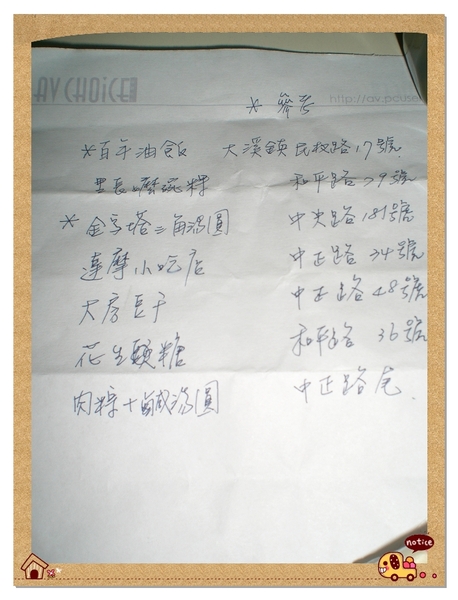 AV CHOICE http://av.pcuse
* 參考
*百年油飯 大溪鎮民权路17號
里長嬤碗粿 和平路29號
* 金字塔三角湯圓 中央路181號
達摩小吃店 中正路34號
大房豆干 中正路48號
花生顆糖 和平路36號
肉粽+鹹湯圓 中正路尾.
notice